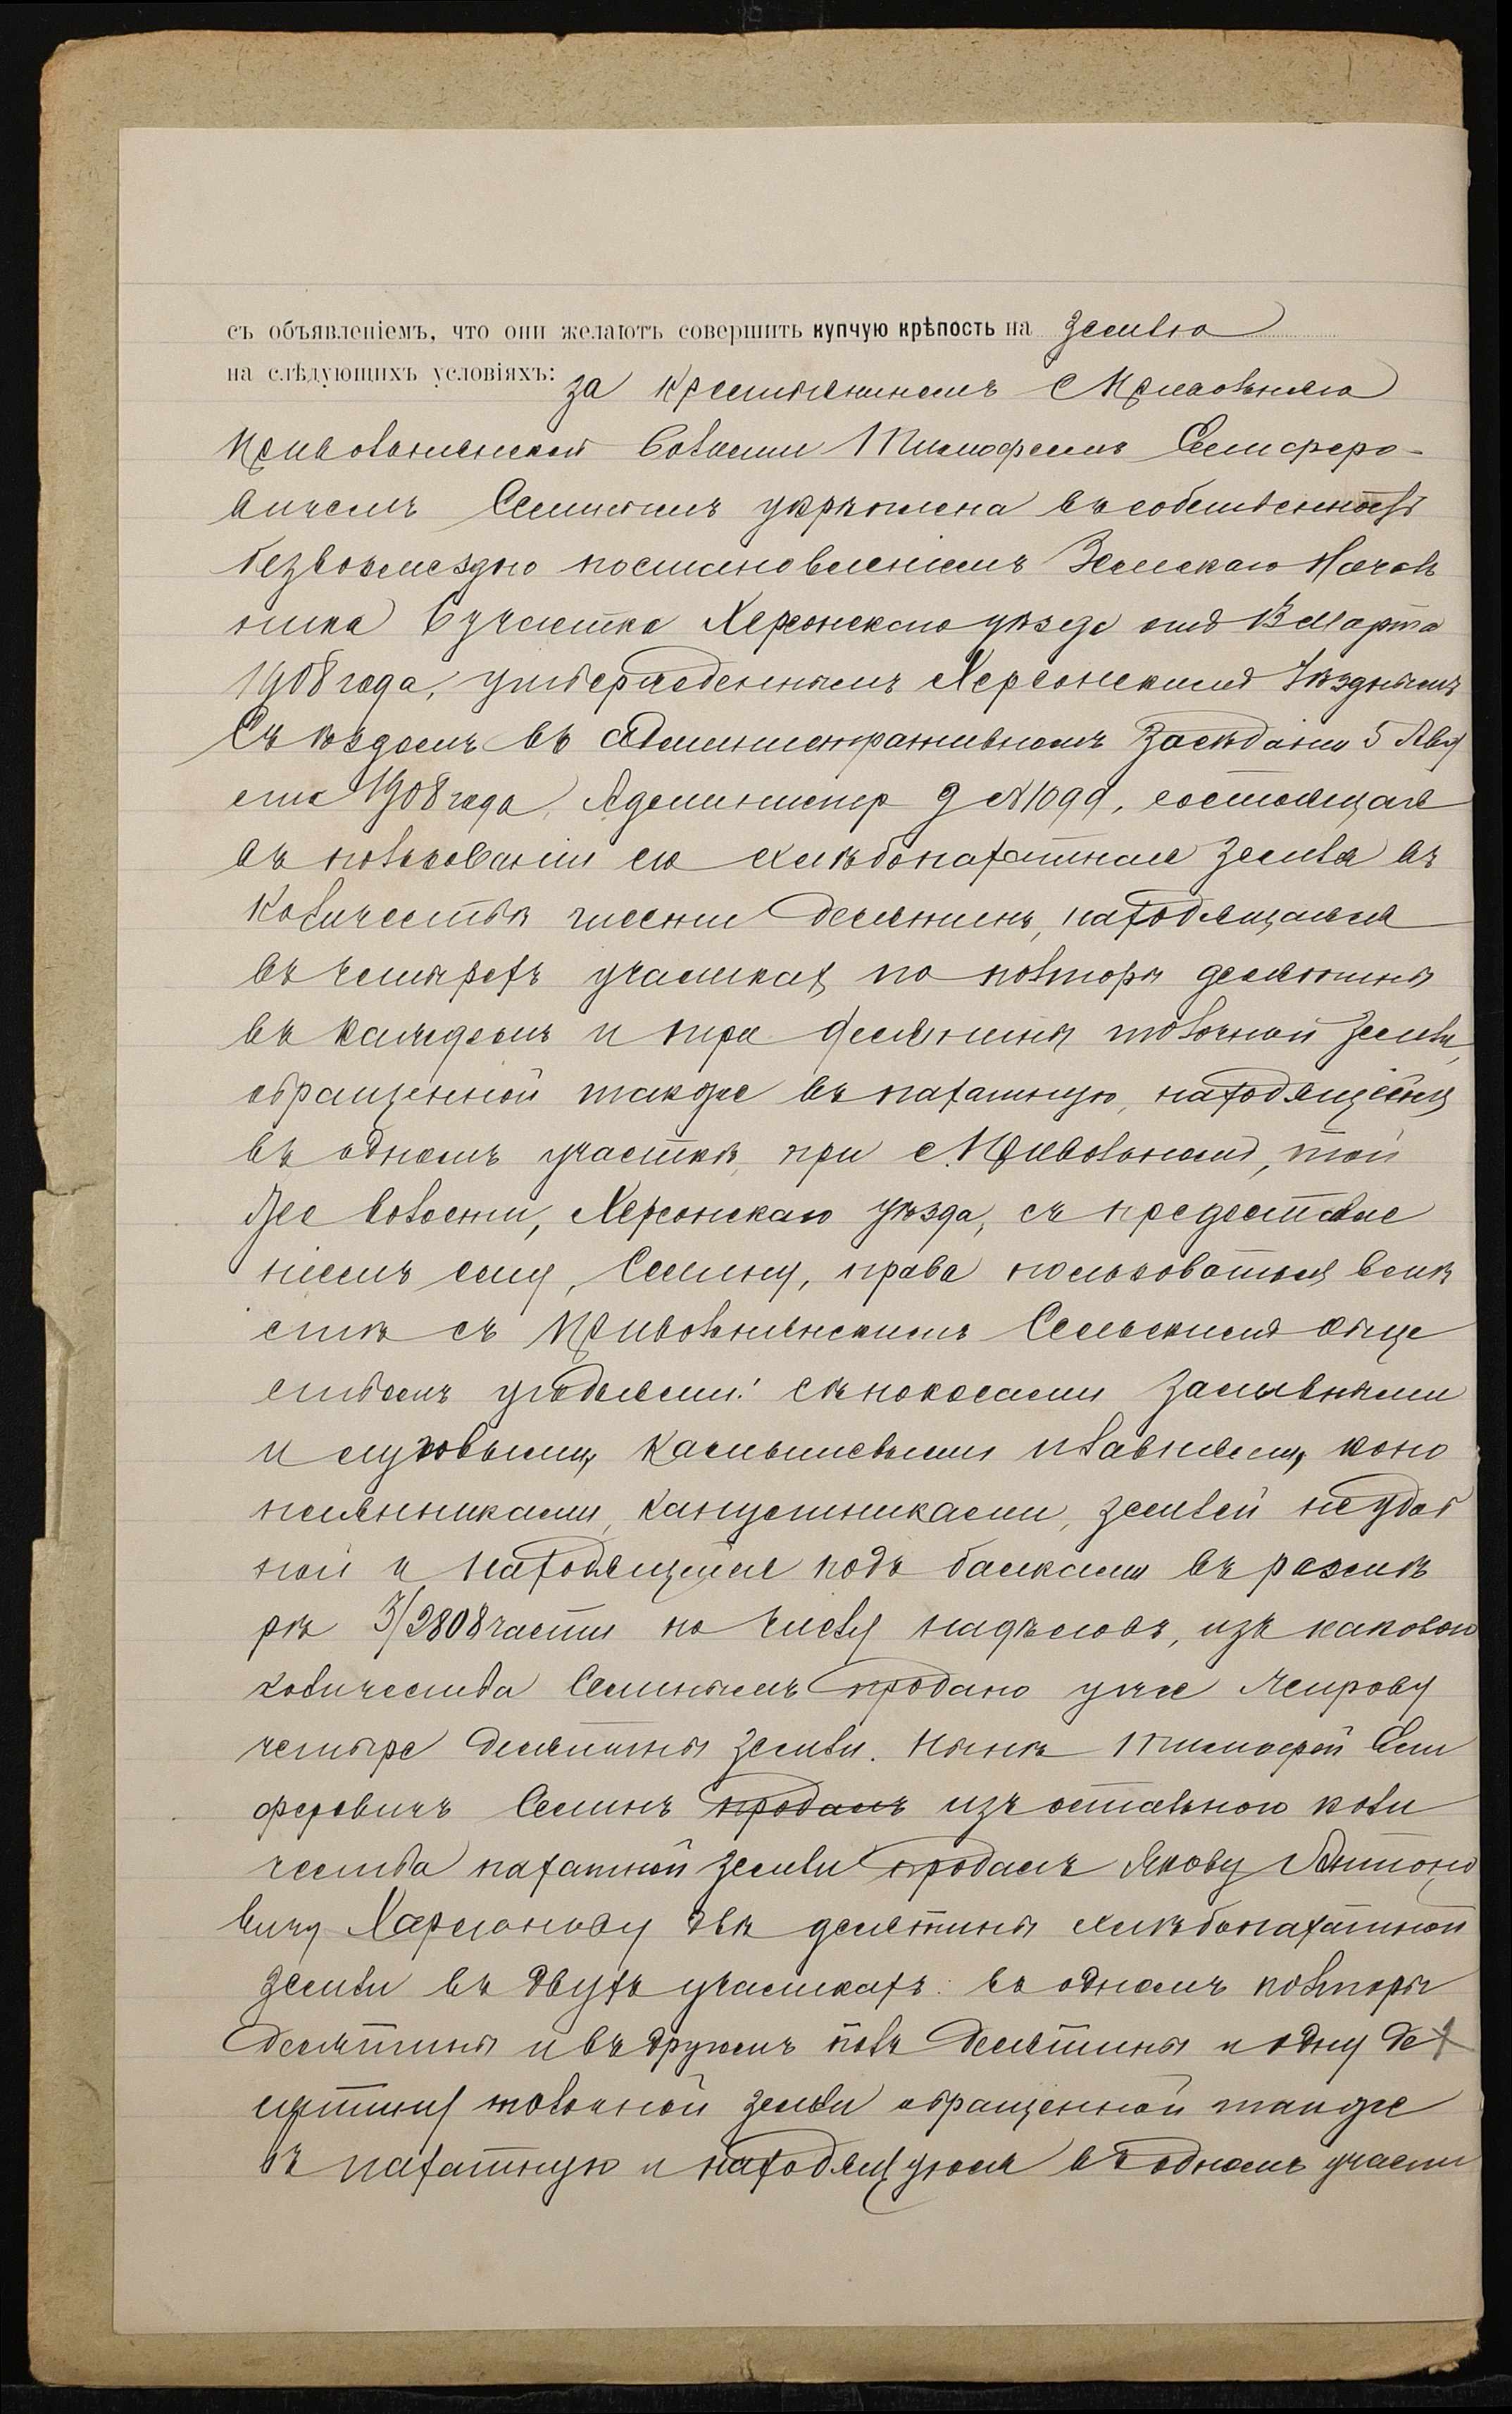 съ объявленіемъ, что они желаютъ совершить купчую крѣпость на землю
на слѣдующихъ условіяхъ: за крестьяниномъ с Привольнаго
Привольнянской волости Тимофеемъ Семферо-
вичемъ Семинымъ укрѣплена въ собственность
безвозмездно постановленіемъ Земскаго Началь
ника 6 участка Херсонскаго уѣзда отъ 13 Марта
1908 года, утвержденнымъ Херсонскимъ Уѣзднымъ
Съѣздомъ въ административномъ засѣданіи 5 Авгу
ста 1908 года, Администр д №1099, состоящая
въ пользованіи его хлѣбопахатная земля въ
количествѣ шести десятинъ, находящаяся
въ четырехъ участкахъ по полторы десятины
въ каждомъ и три десятины толочной земли,
обращенной также въ пахатную, находящейся
въ одномъ участкѣ, при с. Привольномъ, той
же волости, Херсонскаго уѣзда, съ предоставле
ніемъ ему, Семину, права пользоваться вмѣ
стѣ съ Привольнянскимъ Сельскимъ обще
ствомъ угодьями: сѣнокосами заливными
и луговыми, камышевыми плавнями, коно
плянниками, капустниками, землей неудоб
ной и находящейся подъ балками въ размѣ
рѣ 3/2808 части по числу надѣловъ, изъ каковаго
количества Семинымъ продано уже
четыре десятины земли. Нынѣ Тимофей Сем
феровичъ Семинъ продалъ изъ остального коли
чества пахатной земли продалъ Якову Антоно
вичу Харланову двѣ десятины хлѣбопахатной
земли въ двухъ участкахъ: въ одномъ полторы
десятины и въ другомъ полъ десятины и одну де
сятину толочной земли обращенной также
въ пахатную и находящуюся въ одномъ участ